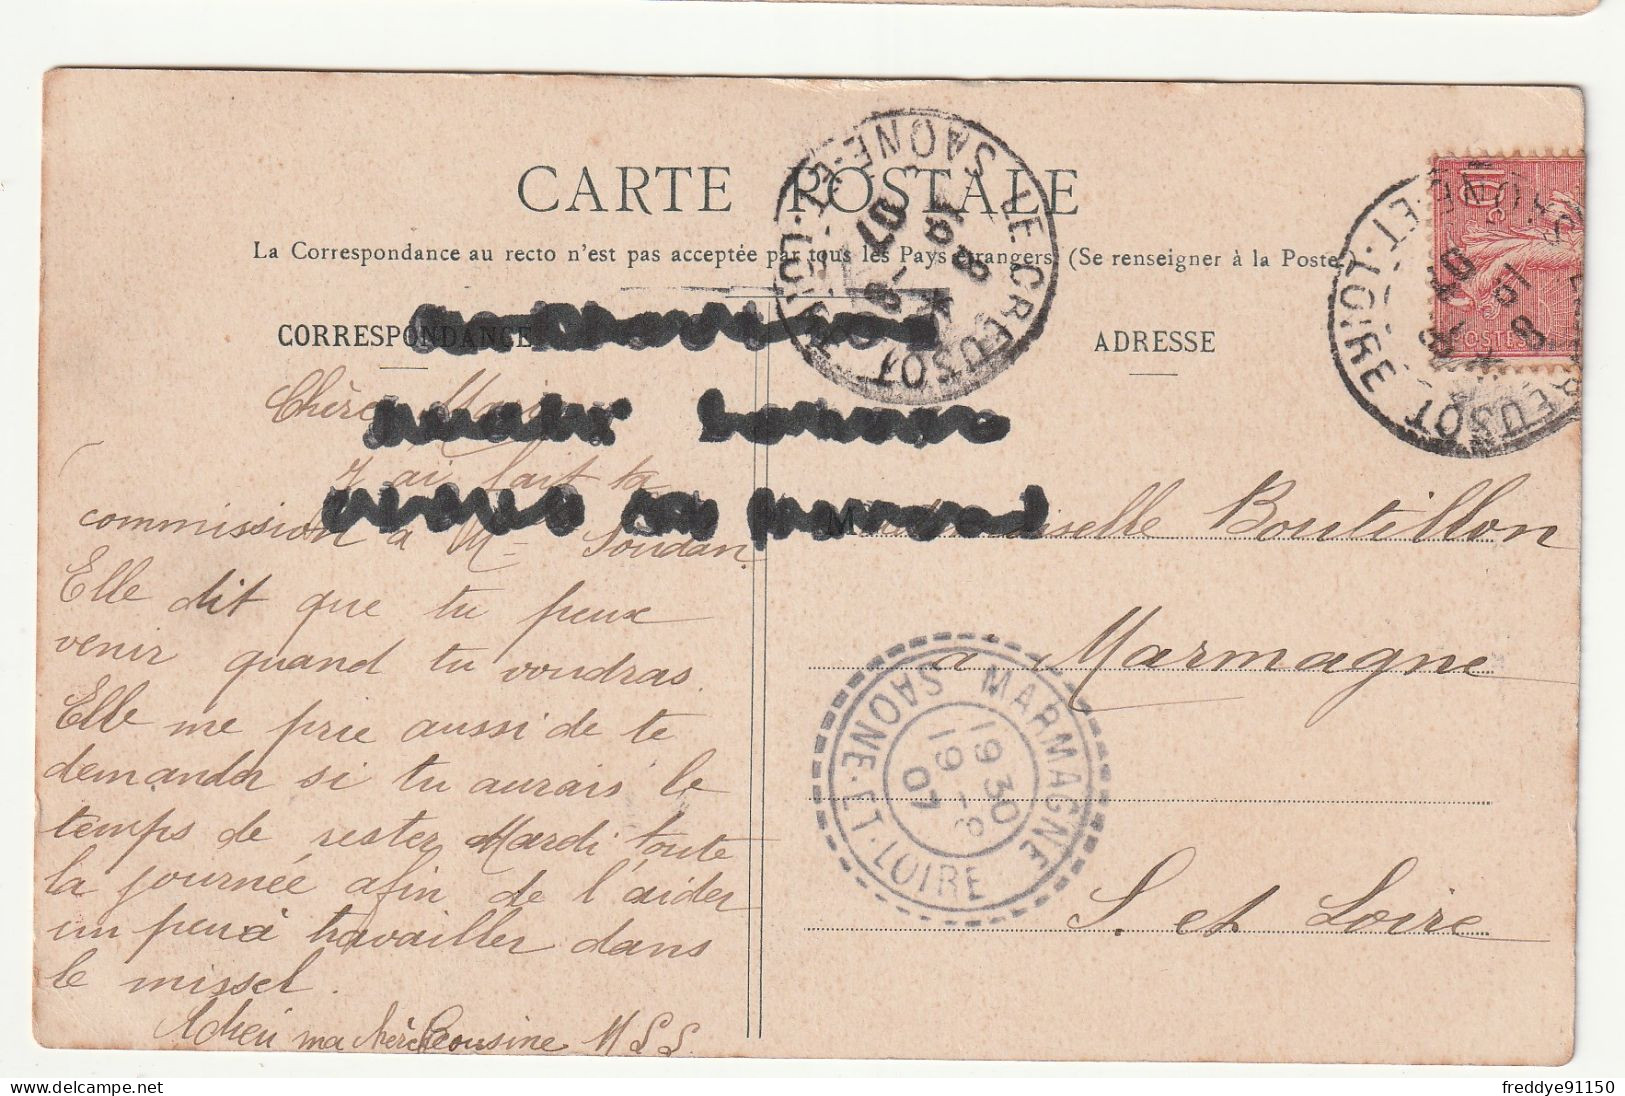 CARTE POSTALE
La Correspondance au recto n'est pas acceptée par tous les Pays étrangers (Se renseigner à la Poste
CORRESPONDANCE
ADRESSE
LE CREUSOT
SAONE-ET-LOIRE
8
19 - 8
07
POSTES
Chère Marie
J'ai fait ta
commission à Me Soudan
Elle dit que tu peux
venir quand tu voudras.
Elle me prie aussi de te
demander si tu aurais le
temps de rester Mardi toute
la journée afin de l'aider
un peu à travailler dans
le missel.
Adieu ma chère Cousine M S S
Mademoiselle Boutillon
à Marmagne
S. et Loire
MARMAGNE
SAONE-ET-LOIRE
19 30
19 - 8
07
freddye91150